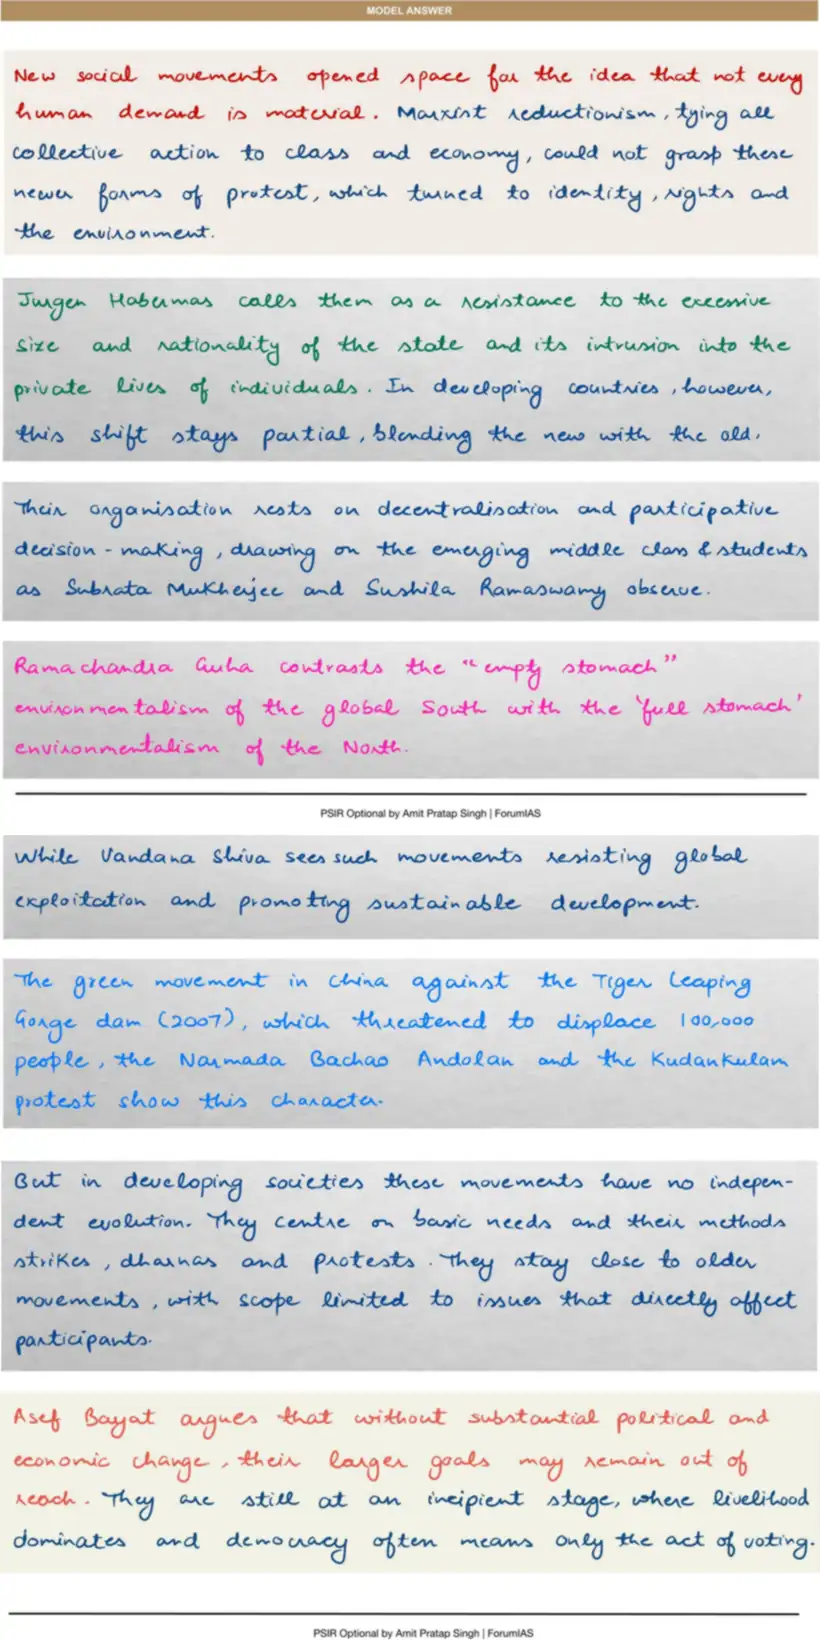 MODEL ANSWER
New social movements opened space for the idea that not every
human demand is material. Marxist reductionism, tying all
collective action to class and economy, could not grasp these
newer forms of protest, which turned to identity, rights and
the environment.
Jurgen Habermas calls them as a resistance to the excessive
size and rationality of the state and its intrusion into the
private lives of individuals. In developing countries, however,
this shift stays partial, blending the new with the old.
Their organisation rests on decentralisation and participative
decision-making, drawing on the emerging middle class & students
as Subrata Mukherjee and Sushila Ramaswamy observe.
Ramachandra Guha contrasts the "empty stomach"
environmentalism of the global South with the 'full stomach'
environmentalism of the North.
PSIR Optional by Amit Pratap Singh | ForumIAS
While Vandana Shiva sees such movements resisting global
exploitation and promoting sustainable development.
The green movement in China against the Tiger Leaping
Gorge dam (2007), which threatened to displace 100,000
people, the Narmada Bachao Andolan and the Kudankulam
protest show this character.
But in developing societies these movements have no indepen-
dent evolution. They centre on basic needs and their methods
strikes, dharnas and protests. They stay close to older
movements, with scope limited to issues that directly affect
participants.
Asef Bayat argues that without substantial political and
economic change, their larger goals may remain out of
reach. They are still at an incipient stage, where livelihood
dominates and democracy often means only the act of voting.
PSIR Optional by Amit Pratap Singh | ForumIAS